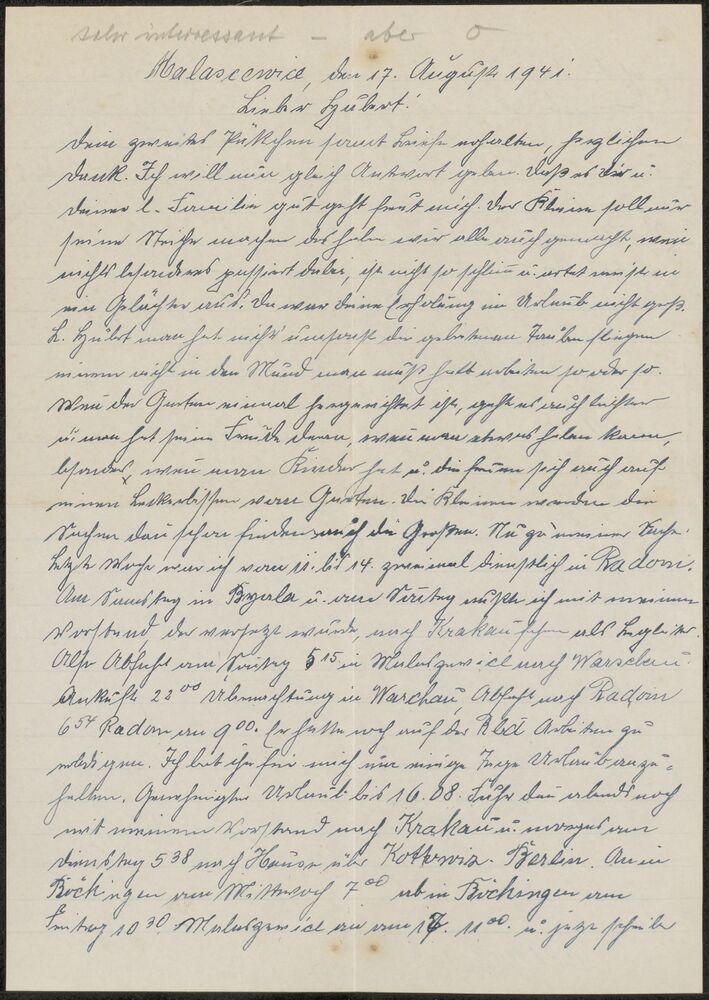 sehr interessant - aber o
Malascewice, den 17. August 1941.
Lieber Hubert!
Dein zweites Päkchen samt Briefe erhalten, herzlichen
Dank. Ich will nun gleich Antwort geben. Daß es Dir u.
Deiner l. Familie gut geht freut mich. Der Kleine soll nur
seine Streiche machen das haben wir alle auch gemacht, wenn
nichts besonderes passiert dabei, ist nicht so schlimm u. artet meist in
ein Gelächter aus. Da war Deine Erholung im Urlaub nicht groß.
L. Hubert man hat nichts umsonst die gebratenen Tauben fliegen
einem nicht in den Mund man muß halt arbeiten so oder so.
Wenn der Garten einmal hergerichtet ist, geht es auch leichter
u. man hat seine Freude daran, wenn man etwas holen kann,
besonders, wenn man Kinder hat u. die freuen sich auch auf
einen Leckerbissen vom Garten. Die Kleinen werden die
Sachen dan schon finden auch die Großen. Nu zu meiner Sache.
Letzte Woche war ich vom 11. bis 14. zweimal dienstlich in Radom.
Am Samstag in Byala u. am Sontag mußte ich mit meinem
Vorstand der versetzt wurde, nach Krakau fahren als Begleiter.
Also Abfahrt am Sontag 5 15 in Malaszewice nach Warschau.
Ankuft 22 00 Übernachtung in Warchau, Abfahrt nach Radom
6 54 Radom an 9 00. Er hatte noch auf der Rbd Arbeiten zu
erledigen. Ich bat ihn für mich um einige Tage Urlaub anzu-
halten. Genehmigter Urlaub bis 16.08. Fuhr dan abends noch
mit meinem Vorstand nach Krakau u. morgens am
Dienstag 5 38 nach Hause über Kottowiz - Berlin. An in
Böchingen am Mittwoch 7 00 ab in Böchingen am
Freitag 10 30 Malaszewice an am 17. 11 00. u. jetzt schreibe